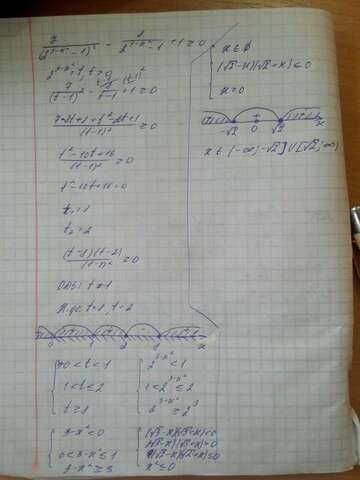 7/(2^(3-x²)-1)² - 8/(2^(3-x²)-1) + 1 ≥ 0
2^(3-x²) = t, t > 0
7/(t-1)² - 8/(t-1) + 1 ≥ 0
(7-8t+8+t²-2t+1)/(t-1)² ≥ 0
(t²-10t+16)/(t-1)² ≥ 0
t²-10t+16=0
t₁=8
t₂=2
(t-8)(t-2)/(t-1)² ≥ 0
ОДЗ: t ≠ 1
Н.ф: t=8, t=2
0 1 2 8 x
0<t<1
1<t≤2
t≥8
2^(3-x²)<1
1<2^(3-x²)≤2
2^(3-x²)≥2³
3-x²<0
0<3-x²≤1
3-x²≥3
(√3-x)(√3+x)<0
(√3-x)(√3+x)>0
(√2-x)(√2+x)≤0
x²≤0
x∈∅
(√2-x)(√2+x)≤0
x=0
-√2 0 √2 x
x∈(-∞;-√2]∪[√2;∞)